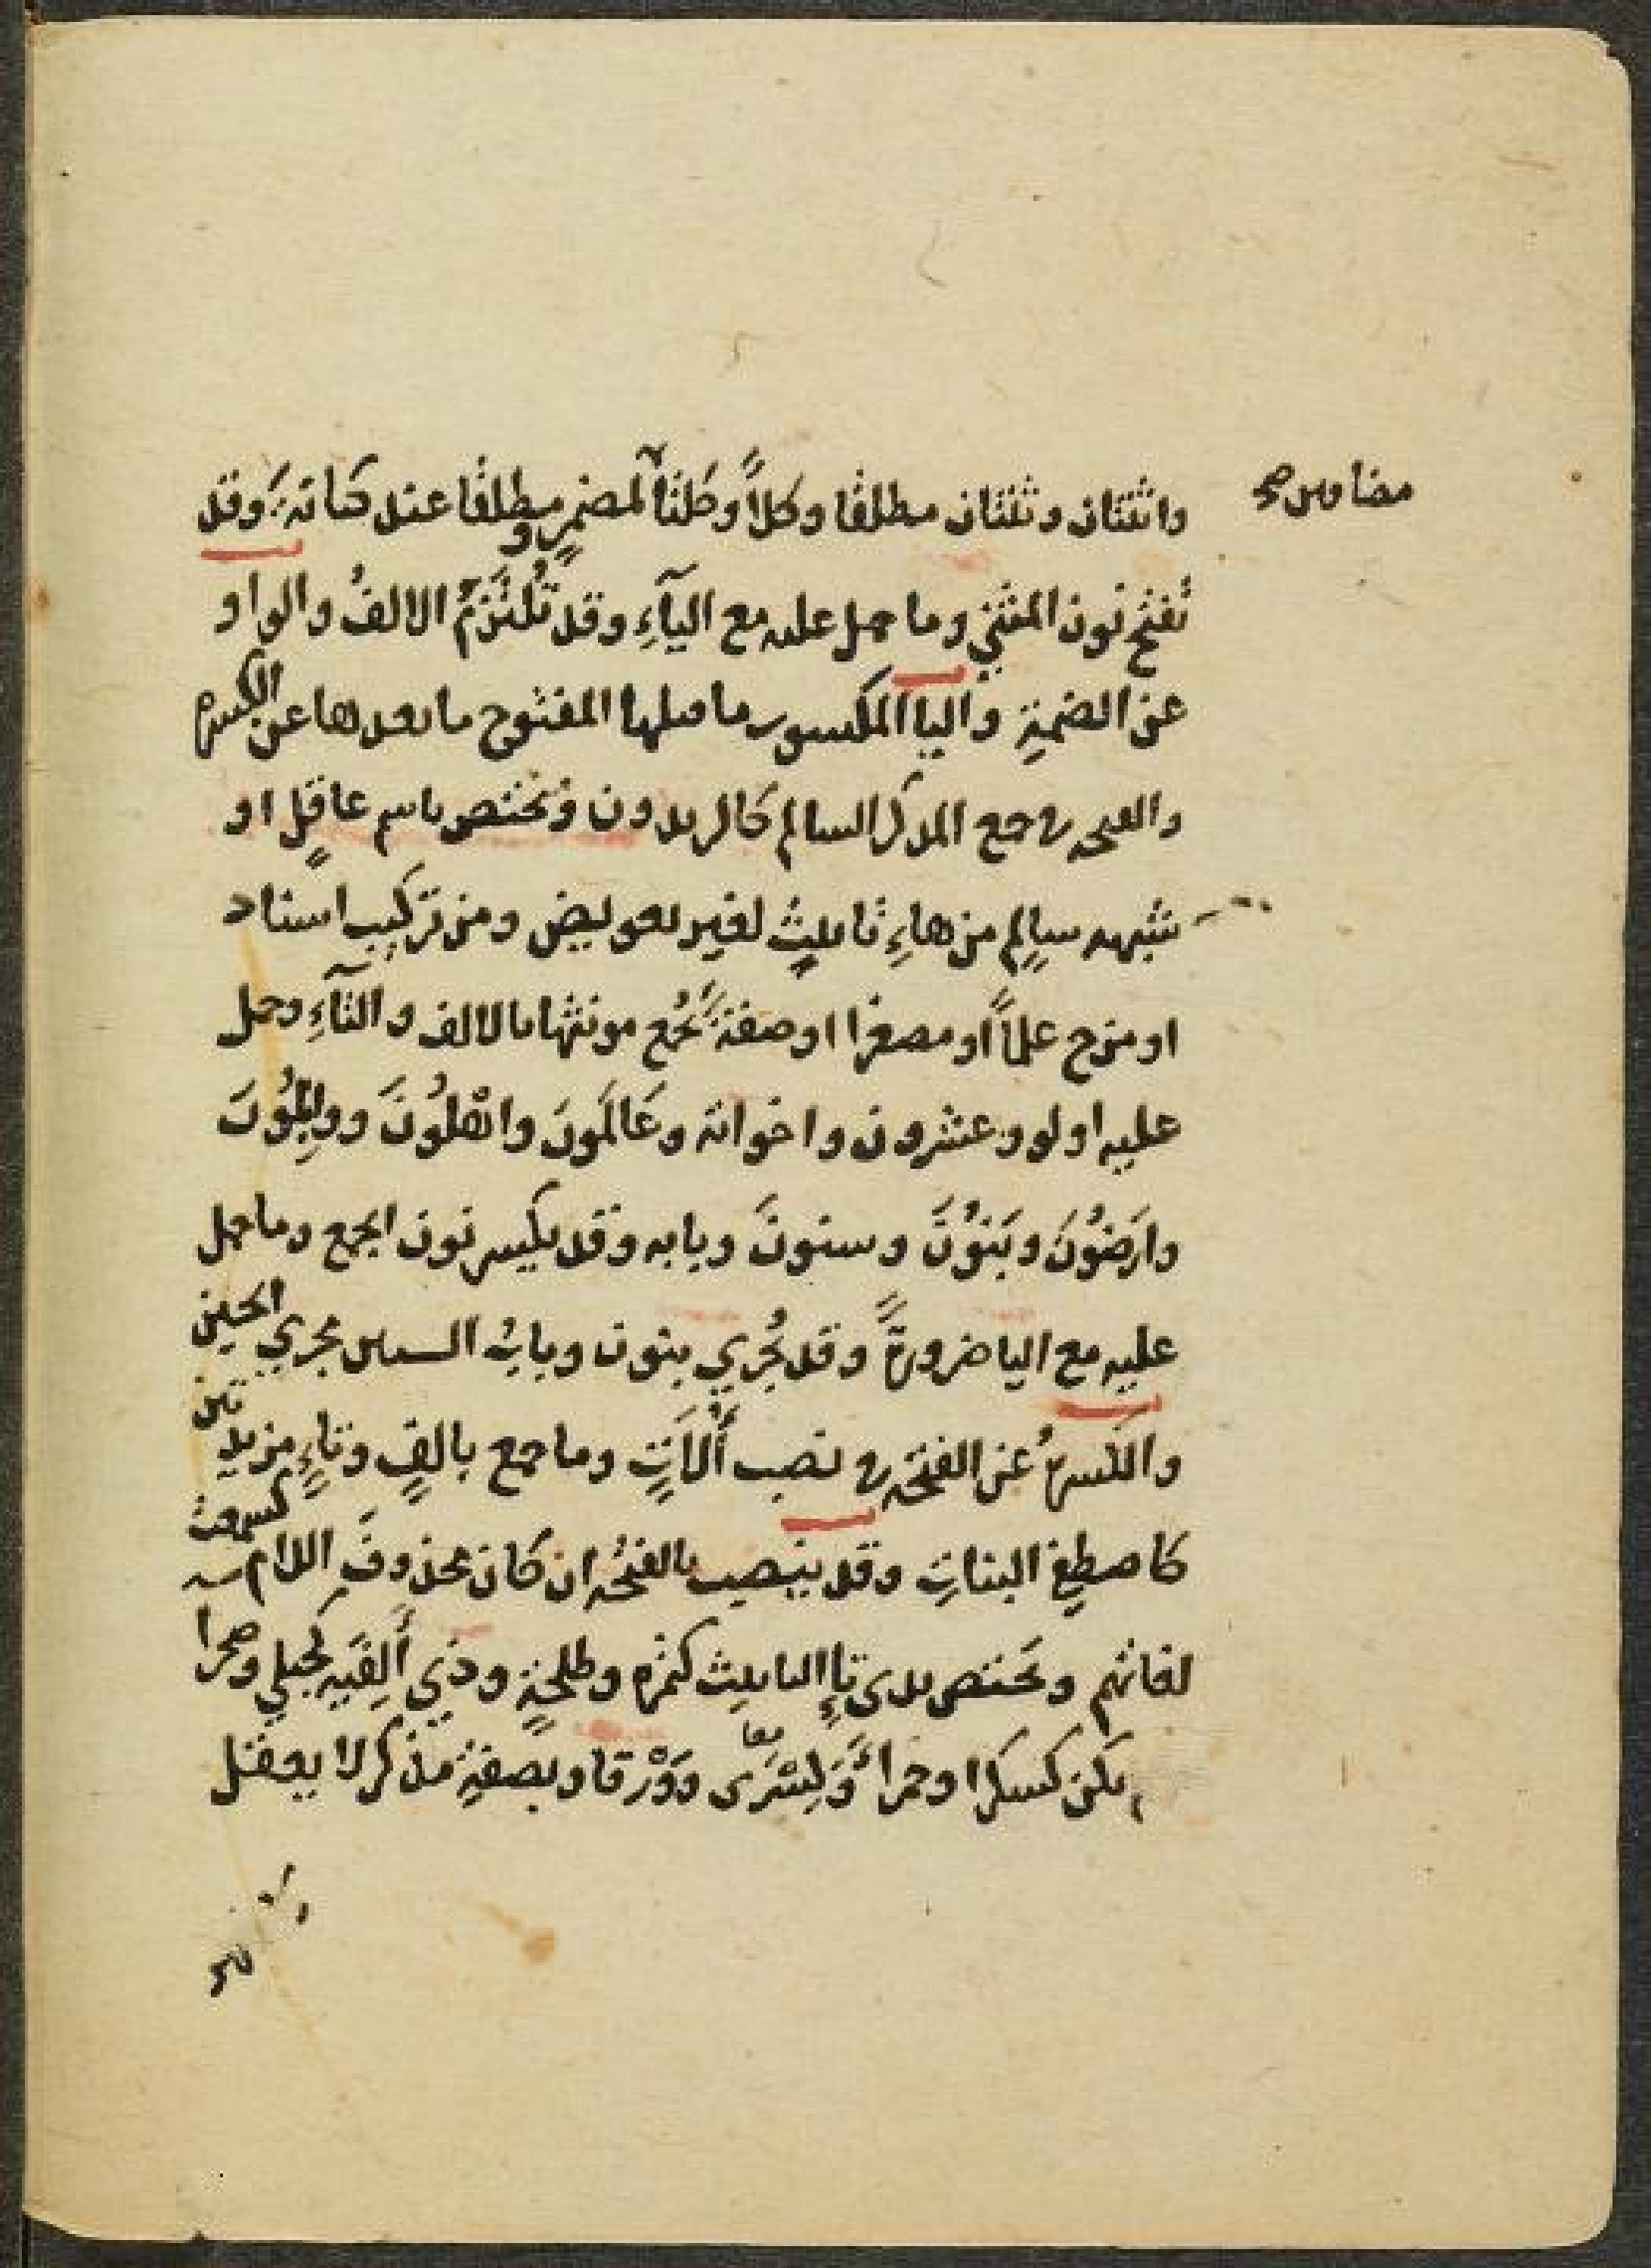 مضافين صح
واثنتان وثنتان مطلقا وكلا وكلتا لمضمر ومطلقا عند كنانة وقد
تفتح نون المثنى وما حمل عليه مع الياء وقد تلتزم الالف والواو
عن الضمة واليا المكسور ما قبلها المفتوح ما بعدها عن الكسرة
والفتحة في جمع المذكر السالم كالزيدون وتختص باسم عاقل او
شبهه سالم من هاء تانيث لغير تعويض ومن تركيب اسناد
او مزج علماً او مصغرا او صفة تجمع مونثها بالالف والتاء وحمل
عليه اولو وعشرون واخواته وعالمون واهلون ووابلون
وارضون وبنون وسنون وبابه وقد يكسر نون الجمع وما حمل
عليه مع اليا ضرورة وقد يجري بنون وباب السنين مجري الحين
والكسرة عن الفتحة في نصب ألات وما جمع بالف وتاء مزيدتين
كاصطفي البنات وقد ينصب بالفتحة ان كان محذوف اللام كسمعت
لغاتهم وتختص بذى تاء التانيث كتمرة وطلحة وذي ألفيه كحبلي وصحرا
لكن كسكرا وحمرا وليشرى معا وورقا وبصفة مذكر لا يعقل